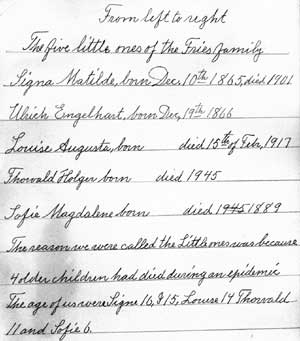 From left to right
The five little ones of the Fries family
Signa Matilde, born Dec. 10th 1865, died 1901
Ulrich Engelhart, born Dec, 19th 1866
Louise Augusta, born died 15th of Febr, 1917
Thorvald Holger born died 1945
Sofie Magdalene born died 1945 1889
The reason we were called the Little ones was because
4 older children had died during an epidemic
The age of us were Signe 16, I 15, Louise 14 Thorvald
11 and Sofie 6.